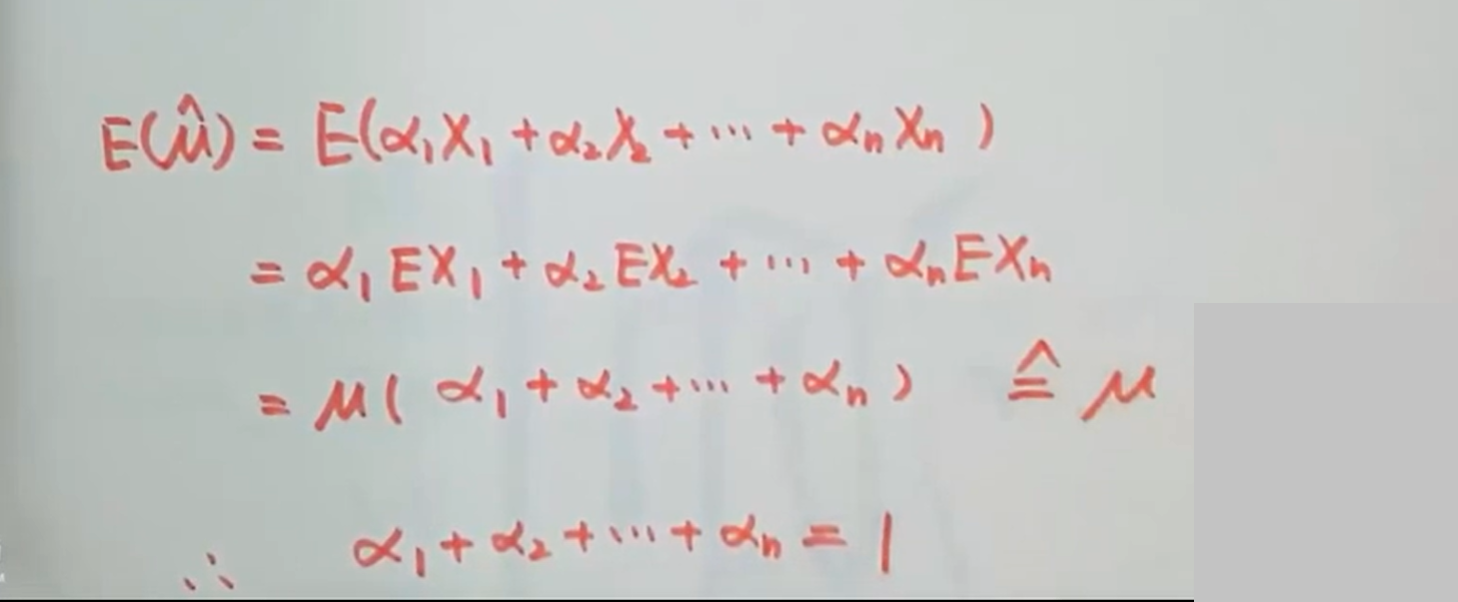 E(μ̂) = E(α₁X₁ + α₂X₂ + ⋯ + αₙXₙ)
= α₁EX₁ + α₂EX₂ + ⋯ + αₙEXₙ
= μ(α₁ + α₂ + ⋯ + αₙ) ≙ μ
∴ α₁ + α₂ + ⋯ + αₙ = 1